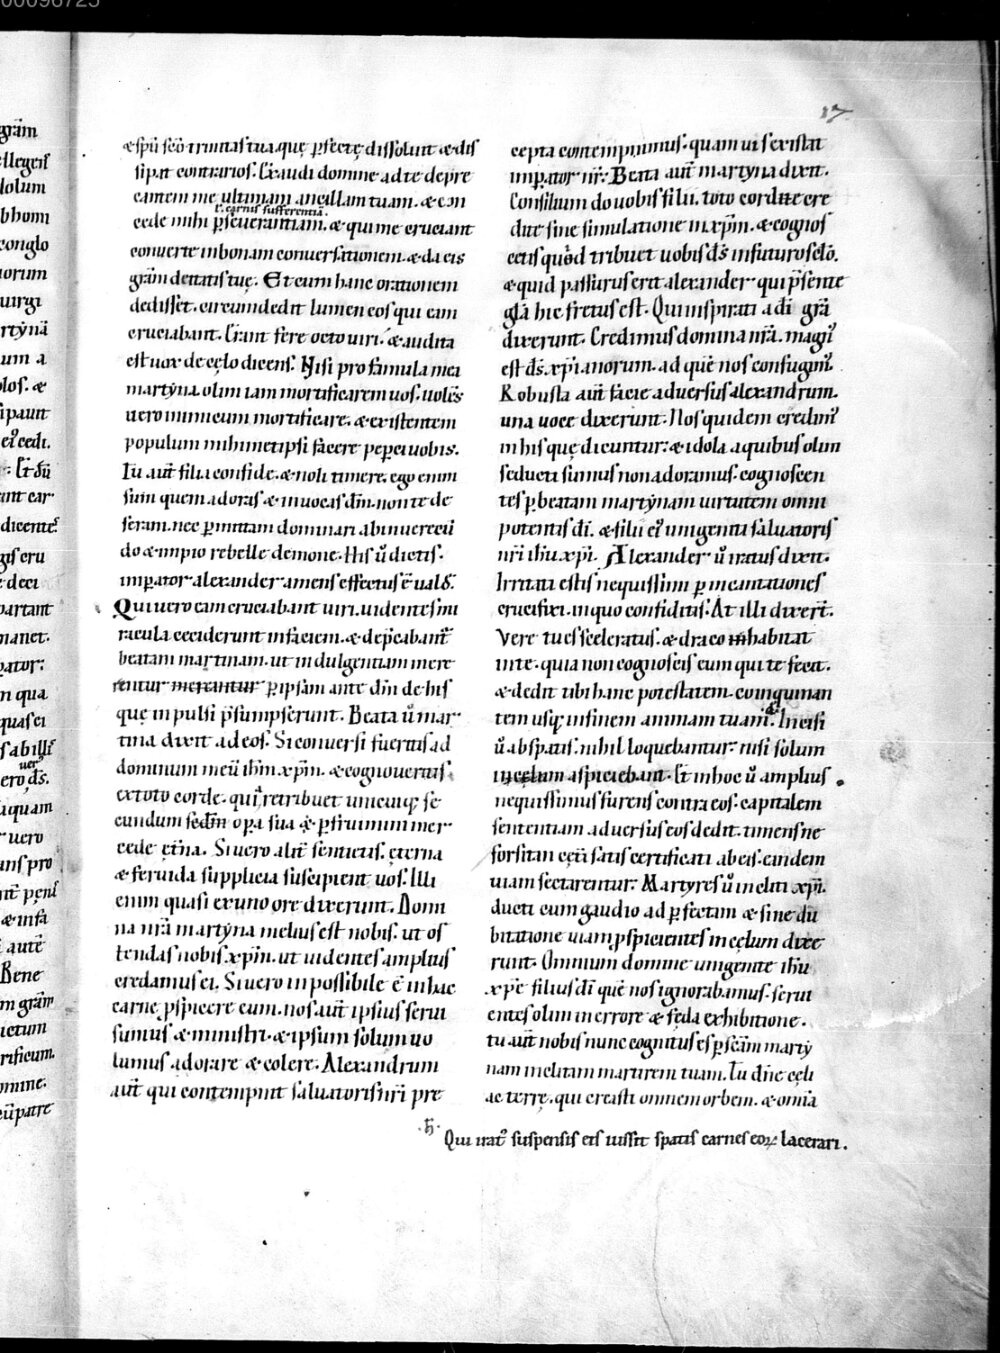 00098725
17
grãm
llegerſ
lolum
bhomi
conglo
uorum
uirgi
rtynã
um a
loſ. &
ſipaur
ei᾽ cedi.
: Et dũ
ant car
dicenteſ
giſ cru
deci
partant
manet.
pator:
n qua
quaſ ei
ſ ab illiſ
uer
ero dſ̃.
a quam
r uero
anſ pro
nt̃ penſ
& inſa
autẽ
Bene
m grãm
ictum
rificum.
mine.
cũ patre
& ſpũ ſc̃o trinitaſ tua quę p̲ſectę diſſoluit & diſ
ſipat contrarioſ. Exaudi domine ad te depre
cantem me ultimam ancillam tuam. & con
ł. carniſ ſufferentiã.
cede mihi p̲ſeuerantiam. & qui me cruciant
conuerte in bonam conuerſationem. & da eiſ
grãm deitatiſ tuę. Et cum hanc orationem
dediſſet. circumdedit lumen eoſ qui eam
cruciabant. Erant fere octo uiri. & audita
eſt uox de cęlo dicenſ. Niſi pro famula mea
martyna olim iam mortificarem uoſ. uolẽſ
uero inimicum mortificare. & exiſtentem
populum mihimetipſi facere peperci uobiſ.
Tu aut̃ filia confide. & noli timere. ego enim
ſum quem adoraſ & inuocaſ dñm. non te de
ſeram. nec p̲mittam dominari ab inuerecũ
do & impio rebelle demone. Hiſ ũ dictiſ.
imp̲ator alexander amenſ effectuſ ẽ ualde.
Qui uero eam cruciabant uiri. uidenteſ mi
racula ceciderunt in faciem. & dep̃cabant᾽
beatam martinam. ut indulgentiam mere
rentur mereantur p̲ ipſam ante dñm de hiſ
quę inpulſi p̃ſumpſerunt. Beata ũ mar
tina dixit ad eoſ. Si conuerſi fueritiſ ad
dominum meũ ihm̃ xp̃m. & cognoueritiſ
ex toto corde. qui᾽ retribuet unicuiq; ſe
cundum ſedm̃ op̲a ſua & p̲fruimini mer
cede et̃na. Si uero alit̃ ſentitiſ. ęterna
& feruida ſupplicia ſuſcipient uoſ. Illi
enim quaſi ex uno ore dixerunt. Domi
na nrã martyna meliuſ eſt nobiſ. ut oſ
tendaſ nobiſ. xp̃m. ut uidenteſ ampliuſ
credamuſ ei. Si uero inpoſſibile ẽ in hac
carne p̲ſpicere eum. noſ aut̃ ipſiuſ ſerui
ſumuſ & miniſtri. & ipſum ſolum uo
lumuſ adorare & colere. Alexandrum
aut̃ qui contempſit ſaluatoriſ nr̃i pre
cepta contempnimuſ. quam uiſ exiſtat
imp̲ator nr̃. Beata aut̃ martyna dixit.
Conſilium do uobiſ filii. toto corde cre
dite ſine ſimulatione in xp̃m. & cognoſ
cetiſ quod tribuet uobiſ dſ̃ in futuro ſc̃lo.
& quid paſſuruſ erit alexander. qui p̃ſente
gl̃a hic fretuſ eſt. Qui inſpirati a di᾽ grã
dixerunt. Credimuſ domina nrã. magn᾽
eſt dſ̃. xp̃ianorum. ad quẽ noſ confugim᾽.
Robuſta aut̃ facie aduerſuſ alexandrum.
una uoce dixerunt. Noſ quidem credim᾽
in hiſ quę dicuntur. & idola a quibuſ olim
ſeducti ſumuſ non adoramuſ. cognoſcen
teſ p̲ beatam martynam uirtutem omni
potentiſ di᾽. & filii ei᾽ unigeniti ſaluatoriſ
nr̃i ihũ xp̃i. Alexander ũ iratuſ dixit.
Irritati eſtiſ nequiſſimi p̲ incantationeſ
crucifixi. in quo confiditiſ. At illi dixer̃t.
Vere tu eſ ſceleratuſ. & draco inhabitat
in te. quia non cognoſciſ eum qui te fecit.
& dedit tibi hanc poteſtatem. coinquinan
tem uſq; in finem animam tuam. Inciſi
ũ ab ſpatiſ. nihil loquebantur. niſi ſolum
in cęlum aſpiciebant. Et in hoc ũ ampliuſ
nequiſſimuſ furenſ contra eoſ. capitalem
ſententiam aduerſuſ eoſ dedit. timenſ ne
forſitan cęti ſatiſ certificati ab eiſ. eandem
uiam ſectarentur. Martyreſ ũ incliti xp̃i.
ducti cum gaudio ad p̲fectam & ſine du
bitatione uiam p̲ſpicienteſ in cęlum dixe
runt. Omnium domine unigenite ihũ
xp̃e filiuſ di᾽ quẽ noſ ignorabamuſ. ſerui
enteſ olim in errore & ſeda exhibitione.
tu aut̃ nobiſ nunc cognituſ eſ p̲ ſcãm marty
nam inclitam martirem tuam. Tu dñe cęli
ac terrę. qui creaſti omnem orbem. & omia
.h̃. Qui irat᾽ ſuſpenſiſ eiſ iuſſit ſpatiſ carneſ eoꝝ lacerari.